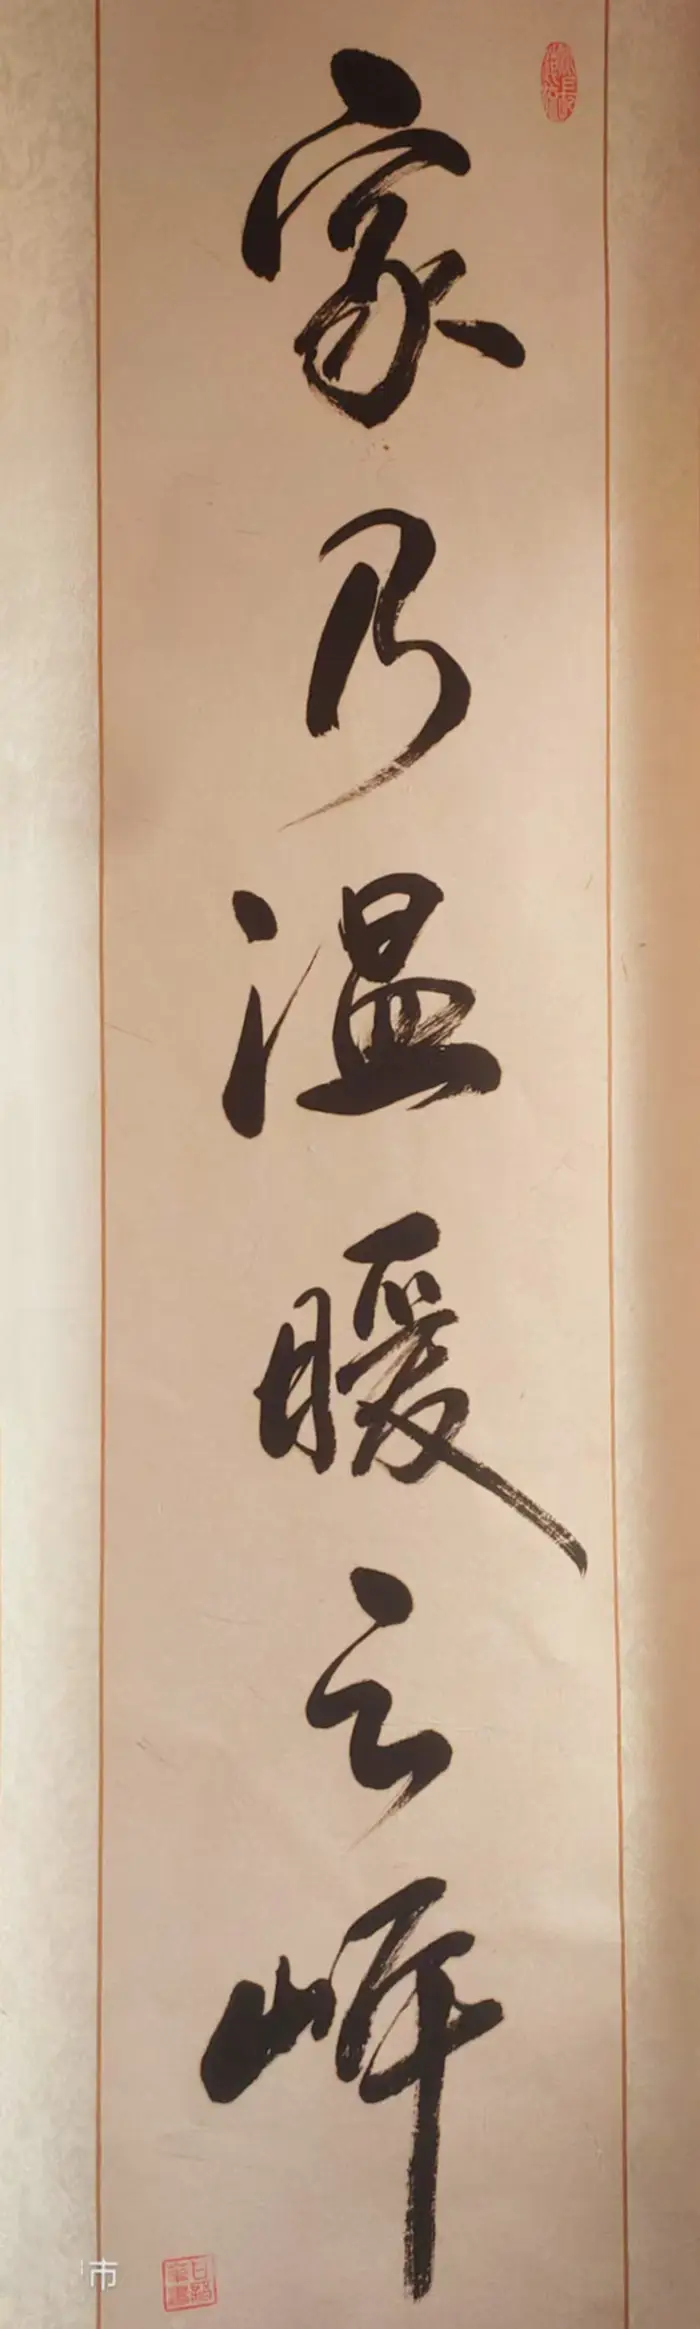 家乃温暖之岸
市